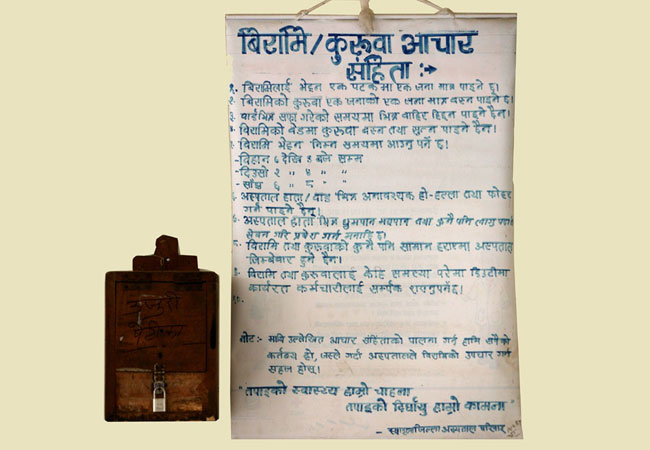 बिरामि/कुरूवा आचार
संहिता :→
१. बिरामिलाई भेट्न एक पटकमा एक जना मात्र पाइने छ।
२. बिरामिको कुरूवा एक जनाको एक जना मात्र बस्न पाइने छ।
३. वार्डभित्र सफा गरेको समयमा भित्र बाहिर हिड्न पाइने छैन।
४. बिरामिको बेडमा कुरूवा बस्न तथा सुत्न पाइने छैन।
५. बिरामि भेट्न निम्न समयमा आउनु पर्ने छ।
-बिहान ६ देखि ८ बजे सम्म
-दिउसो २ " ४ " "
-साँझ ६ " ८ " "
६. अस्पताल हाता/वार्ड भित्र अनावश्यक हो-हल्ला तथा फोहर
गर्न पाइने छैन।
७. अस्पताल हाता भित्र धुम्रपान मद्यपान तथा कुनै पनि लागु पदार्थ
सेवन गरि प्रवेश गर्न मनाहि छ।
८. बिरामि तथा कुरूवाको कुनै पनि सामान हराएमा अस्पताल
जिम्बेवार हुने छैन।
९. बिरामि तथा कुरूवालाई केहि समस्या परेमा डिउटीमा
कार्यरत कर्मचारीलाई सम्पर्क राख्नुपर्नेछ।
१०.
नोट:- माथि उल्लेखित आचार संहिताको पालना गर्नु हामि सबैको
कर्तव्य हो, जस्ले गर्दा अस्पतालले बिरामिको उपचार गर्न
सहज होस्।
"तपाइको स्वास्थ्य हाम्रो चाहना
तपाइको दिर्घायु हाम्रो कामना"
- जिल्ला अस्पताल परिवार